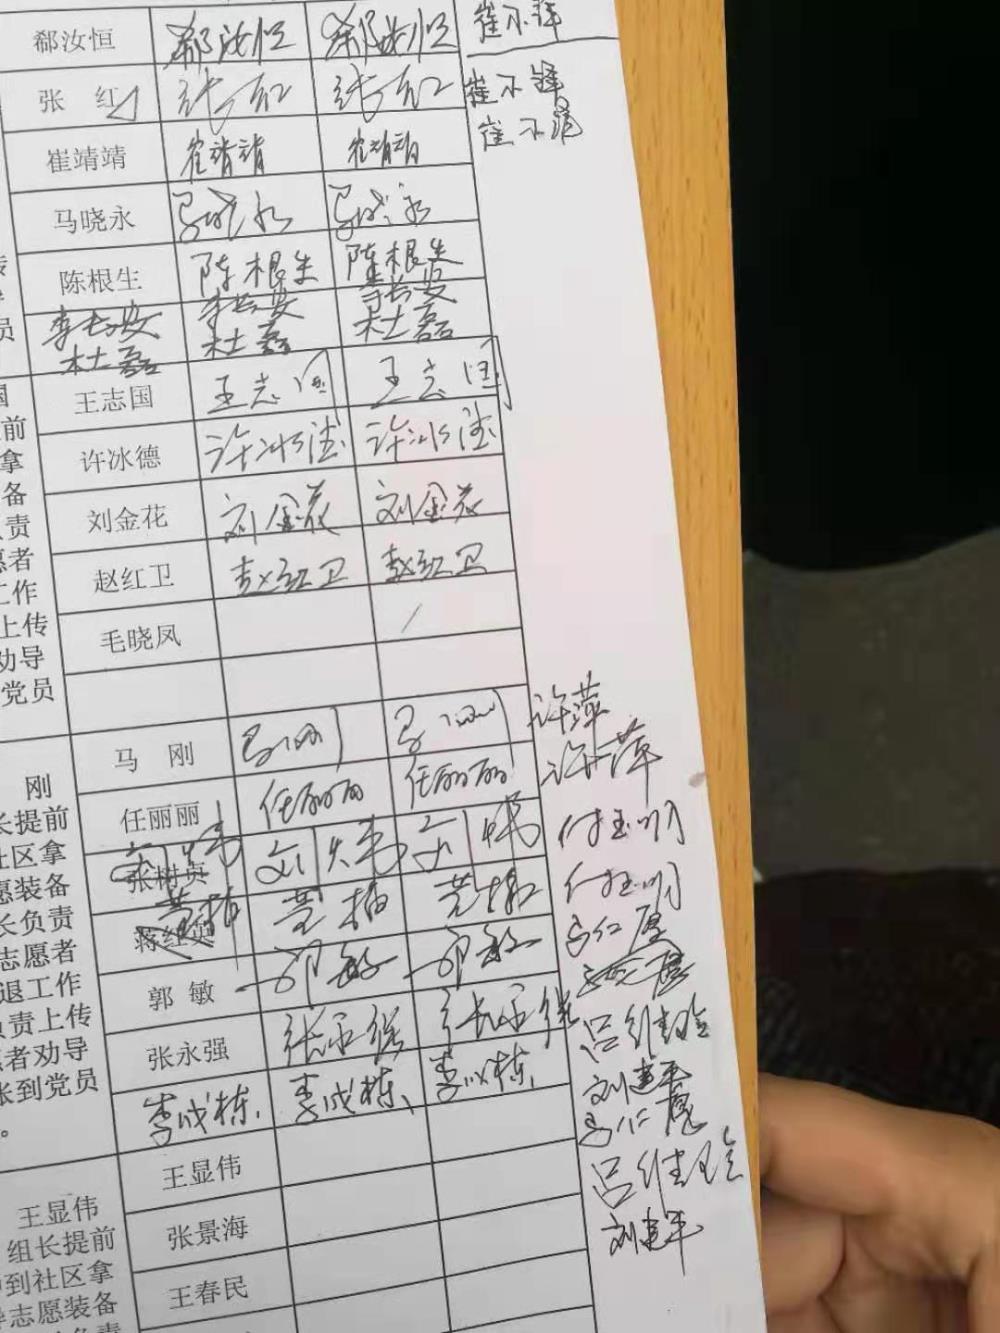 郗汝恒 郗汝恒 郗汝恒
张 红 张红 张红
崔靖靖 崔靖靖 崔靖靖
马晓永 马晓永 马晓永
陈根生 陈根生 陈根生
李长安 李长安 李长安
杜磊 杜磊 杜磊
王志国 王志国 王志国
许冰德 许冰德 许冰德
刘金花 刘金花 刘金花
赵红卫 赵红卫 赵红卫
毛晓凤
马 刚 马刚 马刚
任丽丽 任丽丽 任丽丽
张树贞
蒋红英
郭 敏 郭敏 郭敏
张永强 张永强 张永强
李成栋 李成栋 李成栋
王显伟
张景海
王春民
员
前
拿
备
责
愿者
工作
上传
劝导
党员
刚
长提前
社区拿
愿装备
长负责
志愿者
退工作
负责上传
愿者劝导
张到党员
。
王显伟
组长提前
到社区拿
志愿装备
许萍
许萍
付玉明
付玉明
吕维玲
刘建平
吕维玲
刘建平